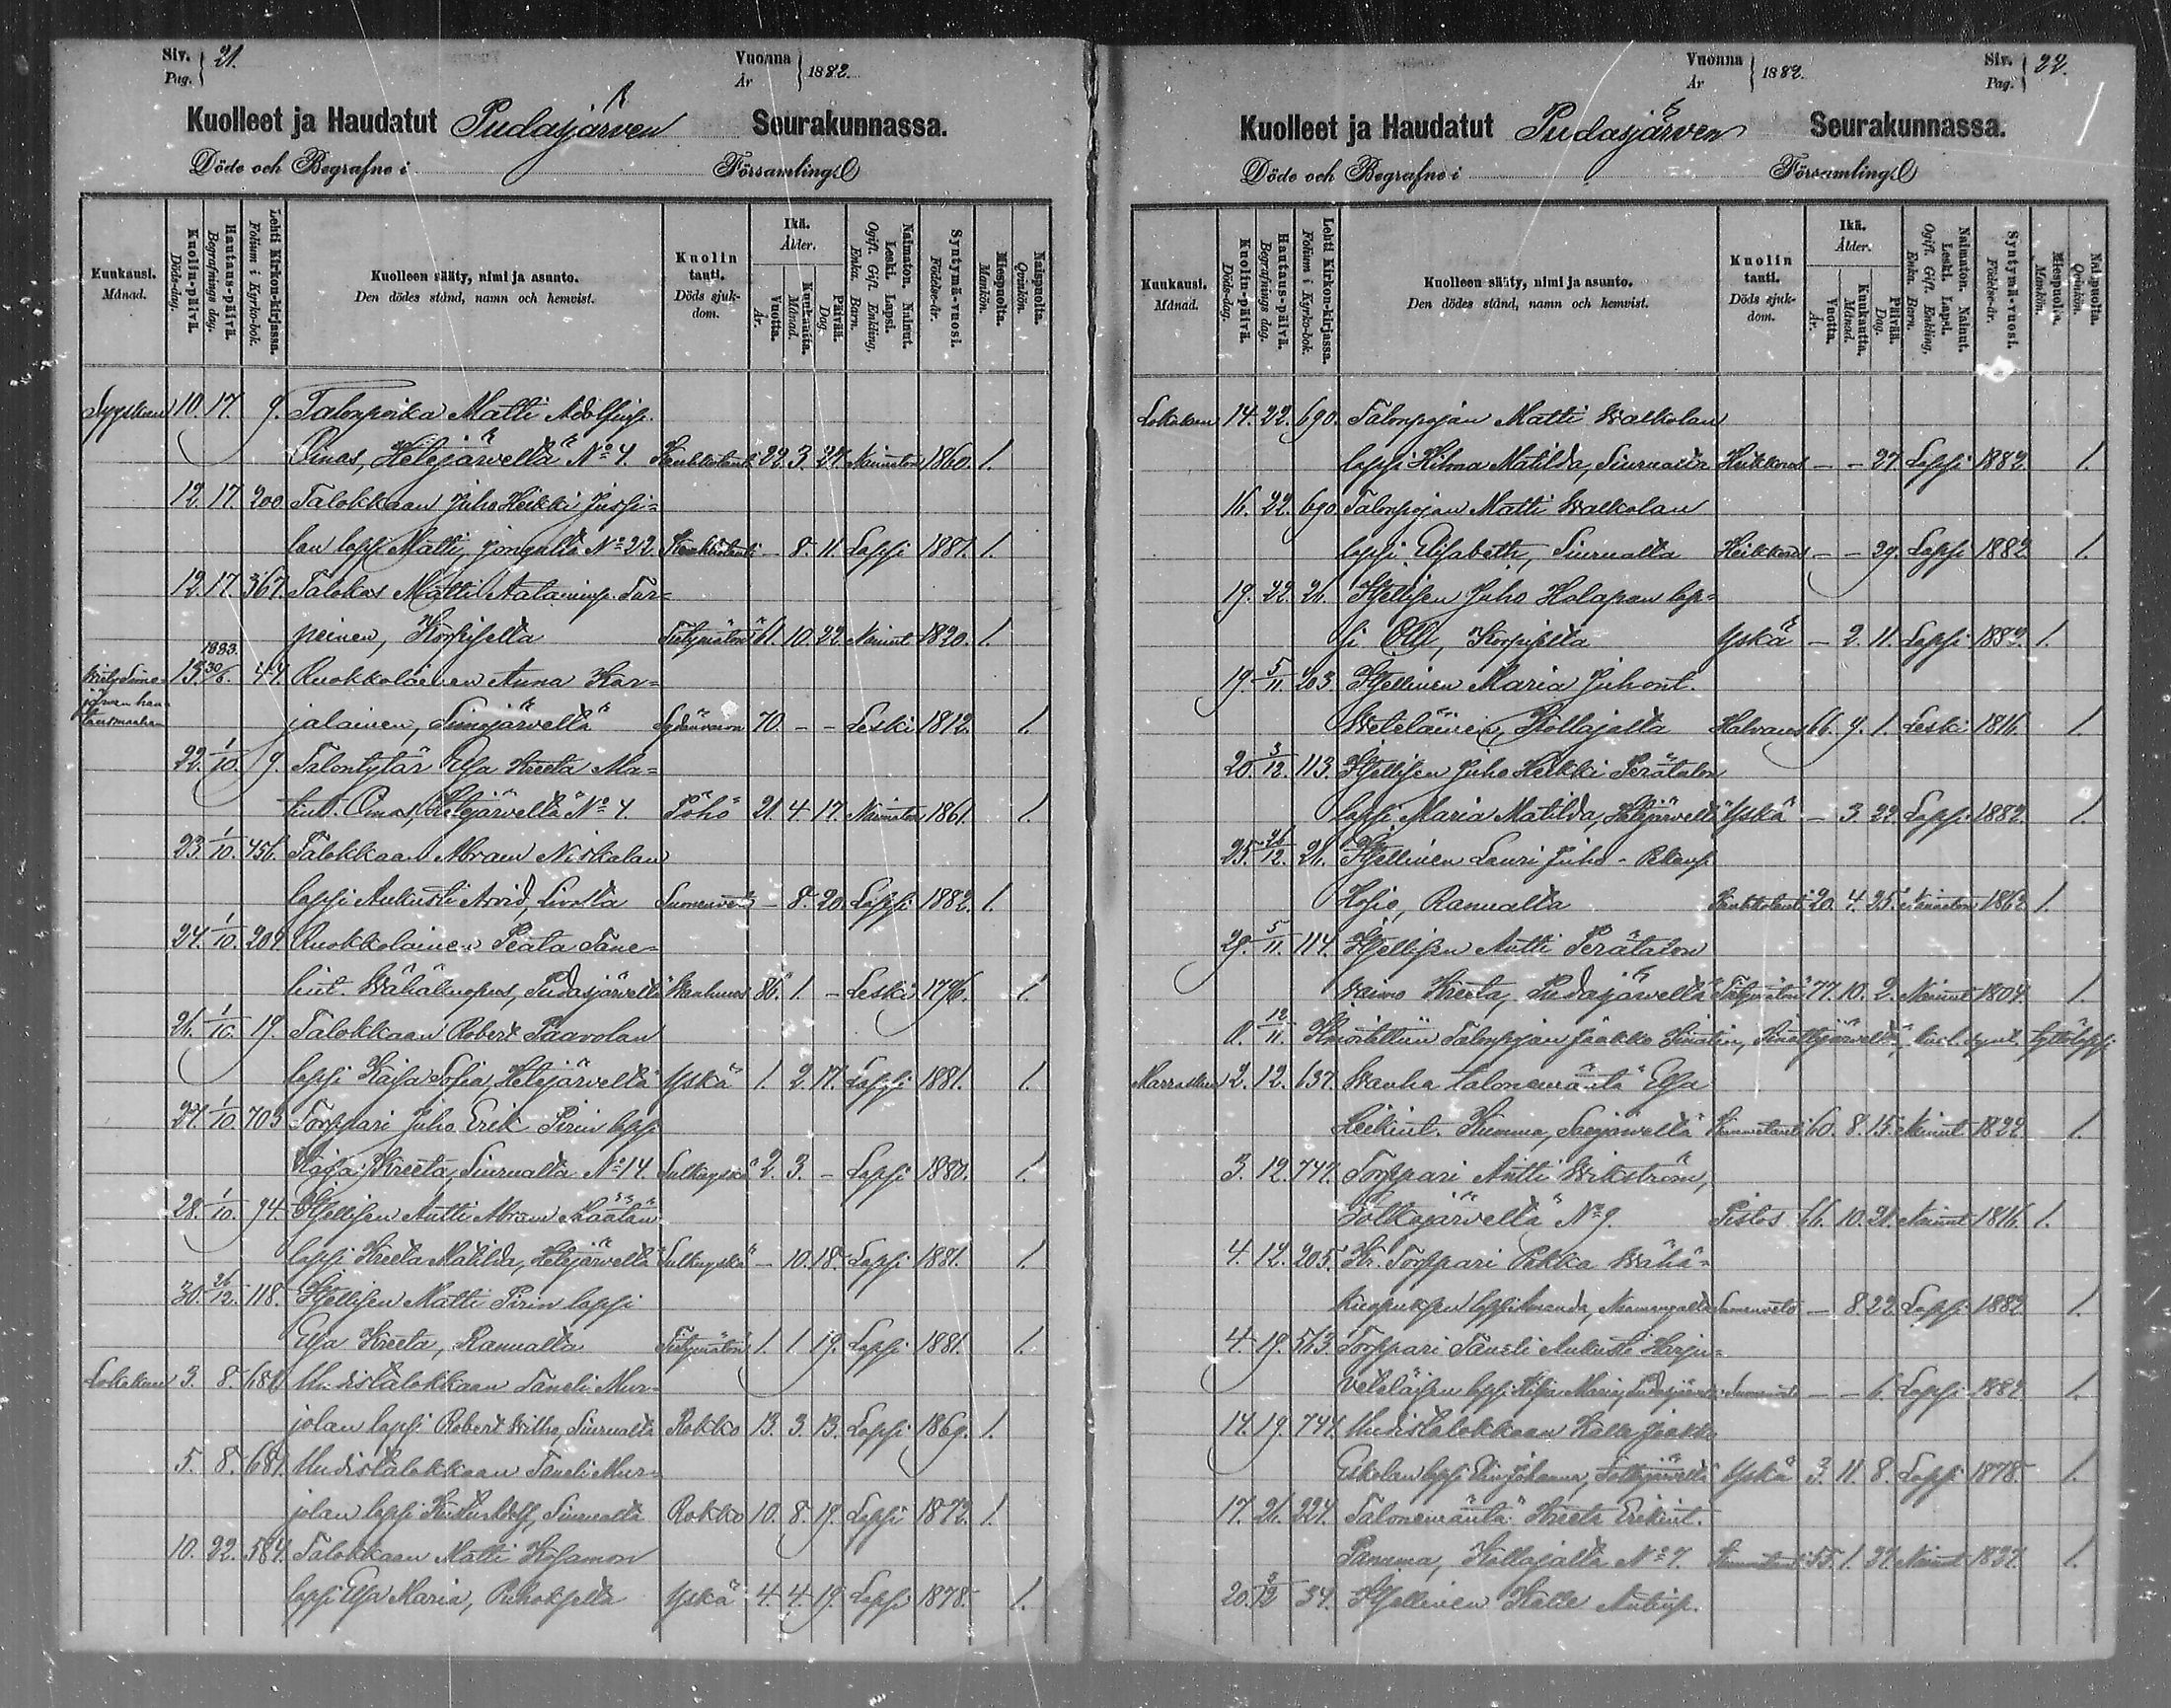 Siv. Pag. 21.
Vuonna År 1882.
Kuolleet ja Haudatut Pudasjärven Seurakunnassa.
Döde och Begrafne i Församling.
Kuukausi. Månad.
Kuolin-päivä. Döds-dag.
Hautaus-päivä. Begrafnings dag.
Lehti Kirkon-kirjassa. Folium i Kyrko-bok.
Kuolleen sääty, nimi ja asunto. Den dödes stånd, namn och hemvist.
Kuolin tauti. Döds sjuk-dom.
Ikä. Ålder.
Vuotta. År.
Kuukautta. Månad.
Päivää. Dag.
Naimaton. Nainut. Leski. Lapsi. Ogift. Gift. Enkling, Enka. Barn.
Syntymä-vuosi. Födelse-år.
Miespuolia. Mankön.
Naispuolta. Qvinkön.
Syyskuu 10. 17. 9. Talonpoika Matti Adolfinp.
Oinas, Hetejärveltä No 4. Keuhkotauti 22. 3. 27. Naimaton 1860. 1.
12. 17. 200. Talokkaan Juho Heikki Jussi-
lan lapsi Matti, Jongulta No 22. Keuhkotauti - 8. 11. Lapsi 1881. 1.
12. 17. 367. Talokas Matti Aataminp. Tur-
peinen, Korpisella Tietymätön 61. 10. 22. Nainut 1820. 1.
1883.
13. 30/6. 44. Ruokkolainen Anna Kar-
jalainen, Simojärveltä 70. - - Leski 1812. 1.
22. 1/10. 9. Talontytär Elsa Kreeta Ma-
tint. Oinas, Hetejärveltä No 4. Pöhö 21. 4. 17. Naimaton 1861. 1.
23. 1/10. 456. Talokkaan Abram Niskalan
lapsi Aukusti Arvid, Livolta Suonenveto - 8. 20. Lapsi 1882. 1.
24. 1/10. 209. Ruokkolainen Peata Tane-
lint. Wähäkuopus, Pudasjärveltä Wanhuus 86. 1. - Leski 1796. 1.
26. 1/10. 19. Talokkaan Robert Paavolan
lapsi Kaisa Sofia, Hetejärveltä Yskä 1. 2. 17. Lapsi 1881. 1.
27. 1/10. 703 Torppari Juho Erik Pirin lapsi
Kaisa Kreeta, Siurualta No 14. Tulkuyskä 2. 3. - Lapsi 1880. 1.
28. 1/10. 94. Itsellisen Antti Abram Määtän
lapsi Kreeta Matilda, Hetejärveltä Tulkuyskä - 10. 18. Lapsi 1881. 1.
30. 26/12. 118. Itsellisen Matti Pirin lapsi
Elsa Kreeta, Ranualta Tietymätön 1. 1 19. Lapsi 1881. 1.
Lokakuu 3. 8. 681. Uudistalokkaan Taneli Mur-
jolan lapsi Robert Wilho, Siurualta Rokko 13. 3. 13. Lapsi 1869. 1.
5. 8. 681. Uudistalokkaan Taneli Mur-
jolan lapsi Siurualta Rokko 10. 8. 19. Lapsi 1872. 1.
10. 22. 584. Talokkaan Matti Kosamon
lapsi Elsa Maria, Puhokselta Yskä 4. 4. 19. Lapsi 1878. 1.
Vuonna År 1882.
Siv. Pag. 22.
Kuolleet ja Haudatut Pudasjärven Seurakunnassa.
Döde och Begrafne i Församling.
Kuukausi. Månad.
Kuolin-päivä. Döds-dag.
Hautaus-päivä. Begrafnings dag.
Lehti Kirkon-kirjassa. Folium i Kyrko-bok.
Kuolleen sääty, nimi ja asunto. Den dödes stånd, namn och hemvist.
Kuolin tauti. Döds sjuk-dom.
Ikä. Ålder.
Vuotta. År.
Kuukautta. Månad.
Päivää. Dag.
Naimaton. Nainut. Leski. Lapsi. Ogift. Gift. Enkling, Enka. Barn.
Syntymä-vuosi. Födelse-år.
Miespuolia. Mankön.
Naispuolta. Qvinkön.
Lokakuu 14. 22. 690. Talonpojan Matti Walkolan
lapsi Hilma Matilda, Siurualta Heikkous - - 27 Lapsi 1882 1.
16. 22. 690. Talonpojan Matti Walkolan
lapsi Elisabeth, Siurualta Heikkous - - 29. Lapsi 1882 1.
19. 22. 26. Itsellisen Juho Halapan lap-
si Olli, Korpiselta Yskä - 2. 11. Lapsi 1882. 1.
19. 5/11. 203. Itsellinen Maria Juhont.
Weteläinen, Kollajalta Halvaus 66. 4. 1. Leski 1816. 1.
20. 3/12. 113. Itsellisen Juho Heikki Perätalon
lapsi Maria Matilda, Hetejärveltä Yskä - 3 22. Lapsi 1882. 1.
25. 26/12. 26. Itsellinen Lauri Juho - Pekanp.
Hosio, Ranualta Keuhkotauti 20. 4. 25. Naimaton 1862 1.
29. 5/11. 114. Itsellisen Antti Perätalon
vaimo Kreeta, Pudasjärveltä Tietymätön 77. 10. 2. Nainut 1804. 1.
0. 12/11. Talonpojan Jaakko kuol. synt. tyttölapsi
Marraskuu 2. 12. 637. Wanha talonemäntä Elsa
Heikint. Kumma, Sarajärveltä 60. 8. 15. Nainut 1822. 1.
3. 12. 747. Torppari Antti Wikström,
No 9. Pistos 66. 10. 21. Nainut 1816. 1.
4. 12. 205. Kr. Torppari Pekka Wähä-
kuopuksen lapsi Amanda, Suonenveto - 8. 22. Lapsi 1882. 1.
4. 19. 563. Torppari Taneli Aukusti Harju-
veteläisen lapsi Maria, Pudasjärveltä - - 6. Lapsi 1882. 1.
14. 19. 744. Uudistalokkaan Kalle Jaakko
Eskolan lapsi Johanna, Yskä 3. 11. 8. Lapsi 1878. 1.
17. 26. 224. Talonemäntä Kreeta Erkint.
Panuma, Kollajalta No 7. 55. 1. Nainut 1827. 1.
20. 3/12 34. Itsellinen Kalle Antinp.